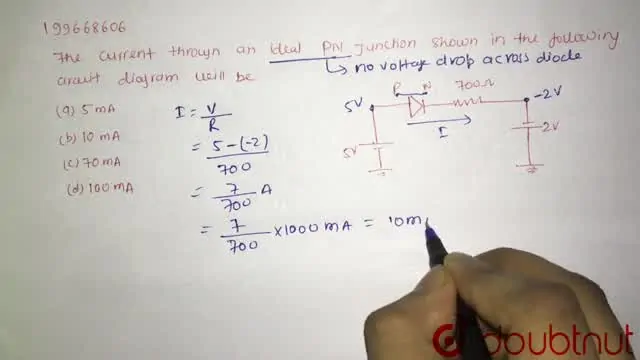 199668606
The current through an ideal PN Junction shown in the following
circuit diagram will be
↳ no voltage drop across diode
(a) 5 mA
(b) 10 mA
(c) 70 mA
(d) 100 mA
I = V/R
= 5-(-2)/700
= 7/700 A
= 7/700 ×1000 mA = 10m
P N 700Ω
5V -2V
I
5V 2V
doubtnut